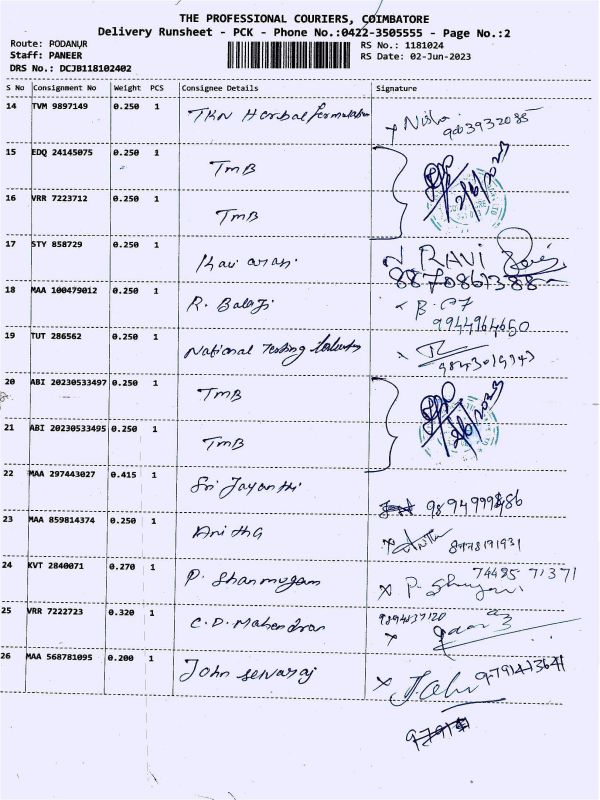 THE PROFESSIONAL COURIERS, COIMBATORE
Delivery Runsheet - PCK - Phone No.:0422-3505555 - Page No.:2
Route: PODANUR
RS No.: 1181024
Staff: PANEER
RS Date: 02-Jun-2023
DRS No.: DCJB118102402
S No Consignment No Weight PCS Consignee Details Signature
14 TVM 9897149 0.250 1 TKN Herbal Nisha
15 EDQ 24145075 0.250 1 TMB 2/6/2023
16 VRR 7223712 0.250 1 TMB
17 STY 858729 0.250 1 RAVI
8870867388
18 MAA 100479012 0.250 1 R. Balaji
9944964650
19 TUT 286562 0.250 1 National Testing
20 ABI 20230533497 0.250 1 TMB 2/6/2023
21 ABI 20230533495 0.250 1 TMB
22 MAA 297443027 0.415 1 Sri Jayanthi
23 MAA 859814374 0.250 1 Anitha
8978191931
24 KVT 2840071 0.270 1 P. Shanmugam 74485 71371
25 VRR 7222723 0.320 1 C.D. Mahendran
26 MAA 568781095 0.200 1 John Selvaraj John 9791413641